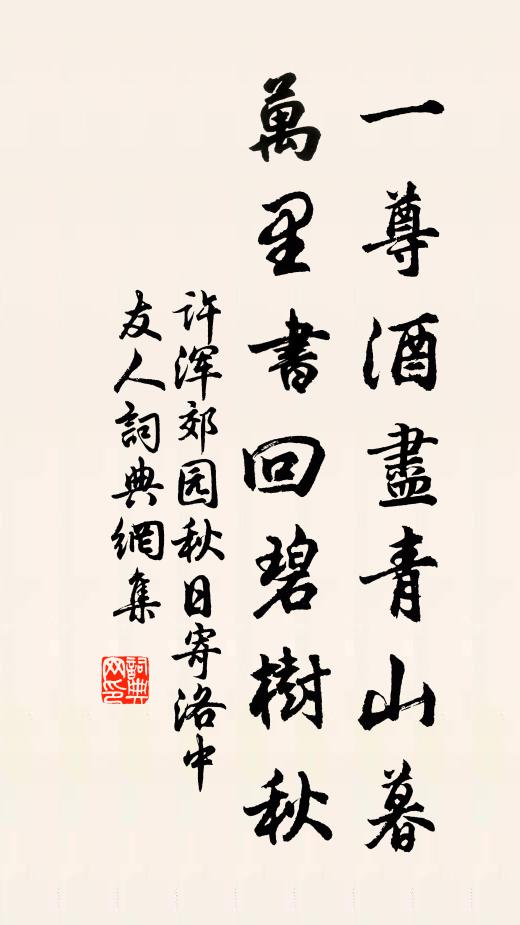 一尊酒盡青山暮
萬里書回碧樹秋
许浑郊园秋日寄洛中
友人詞典網集
詞典网印